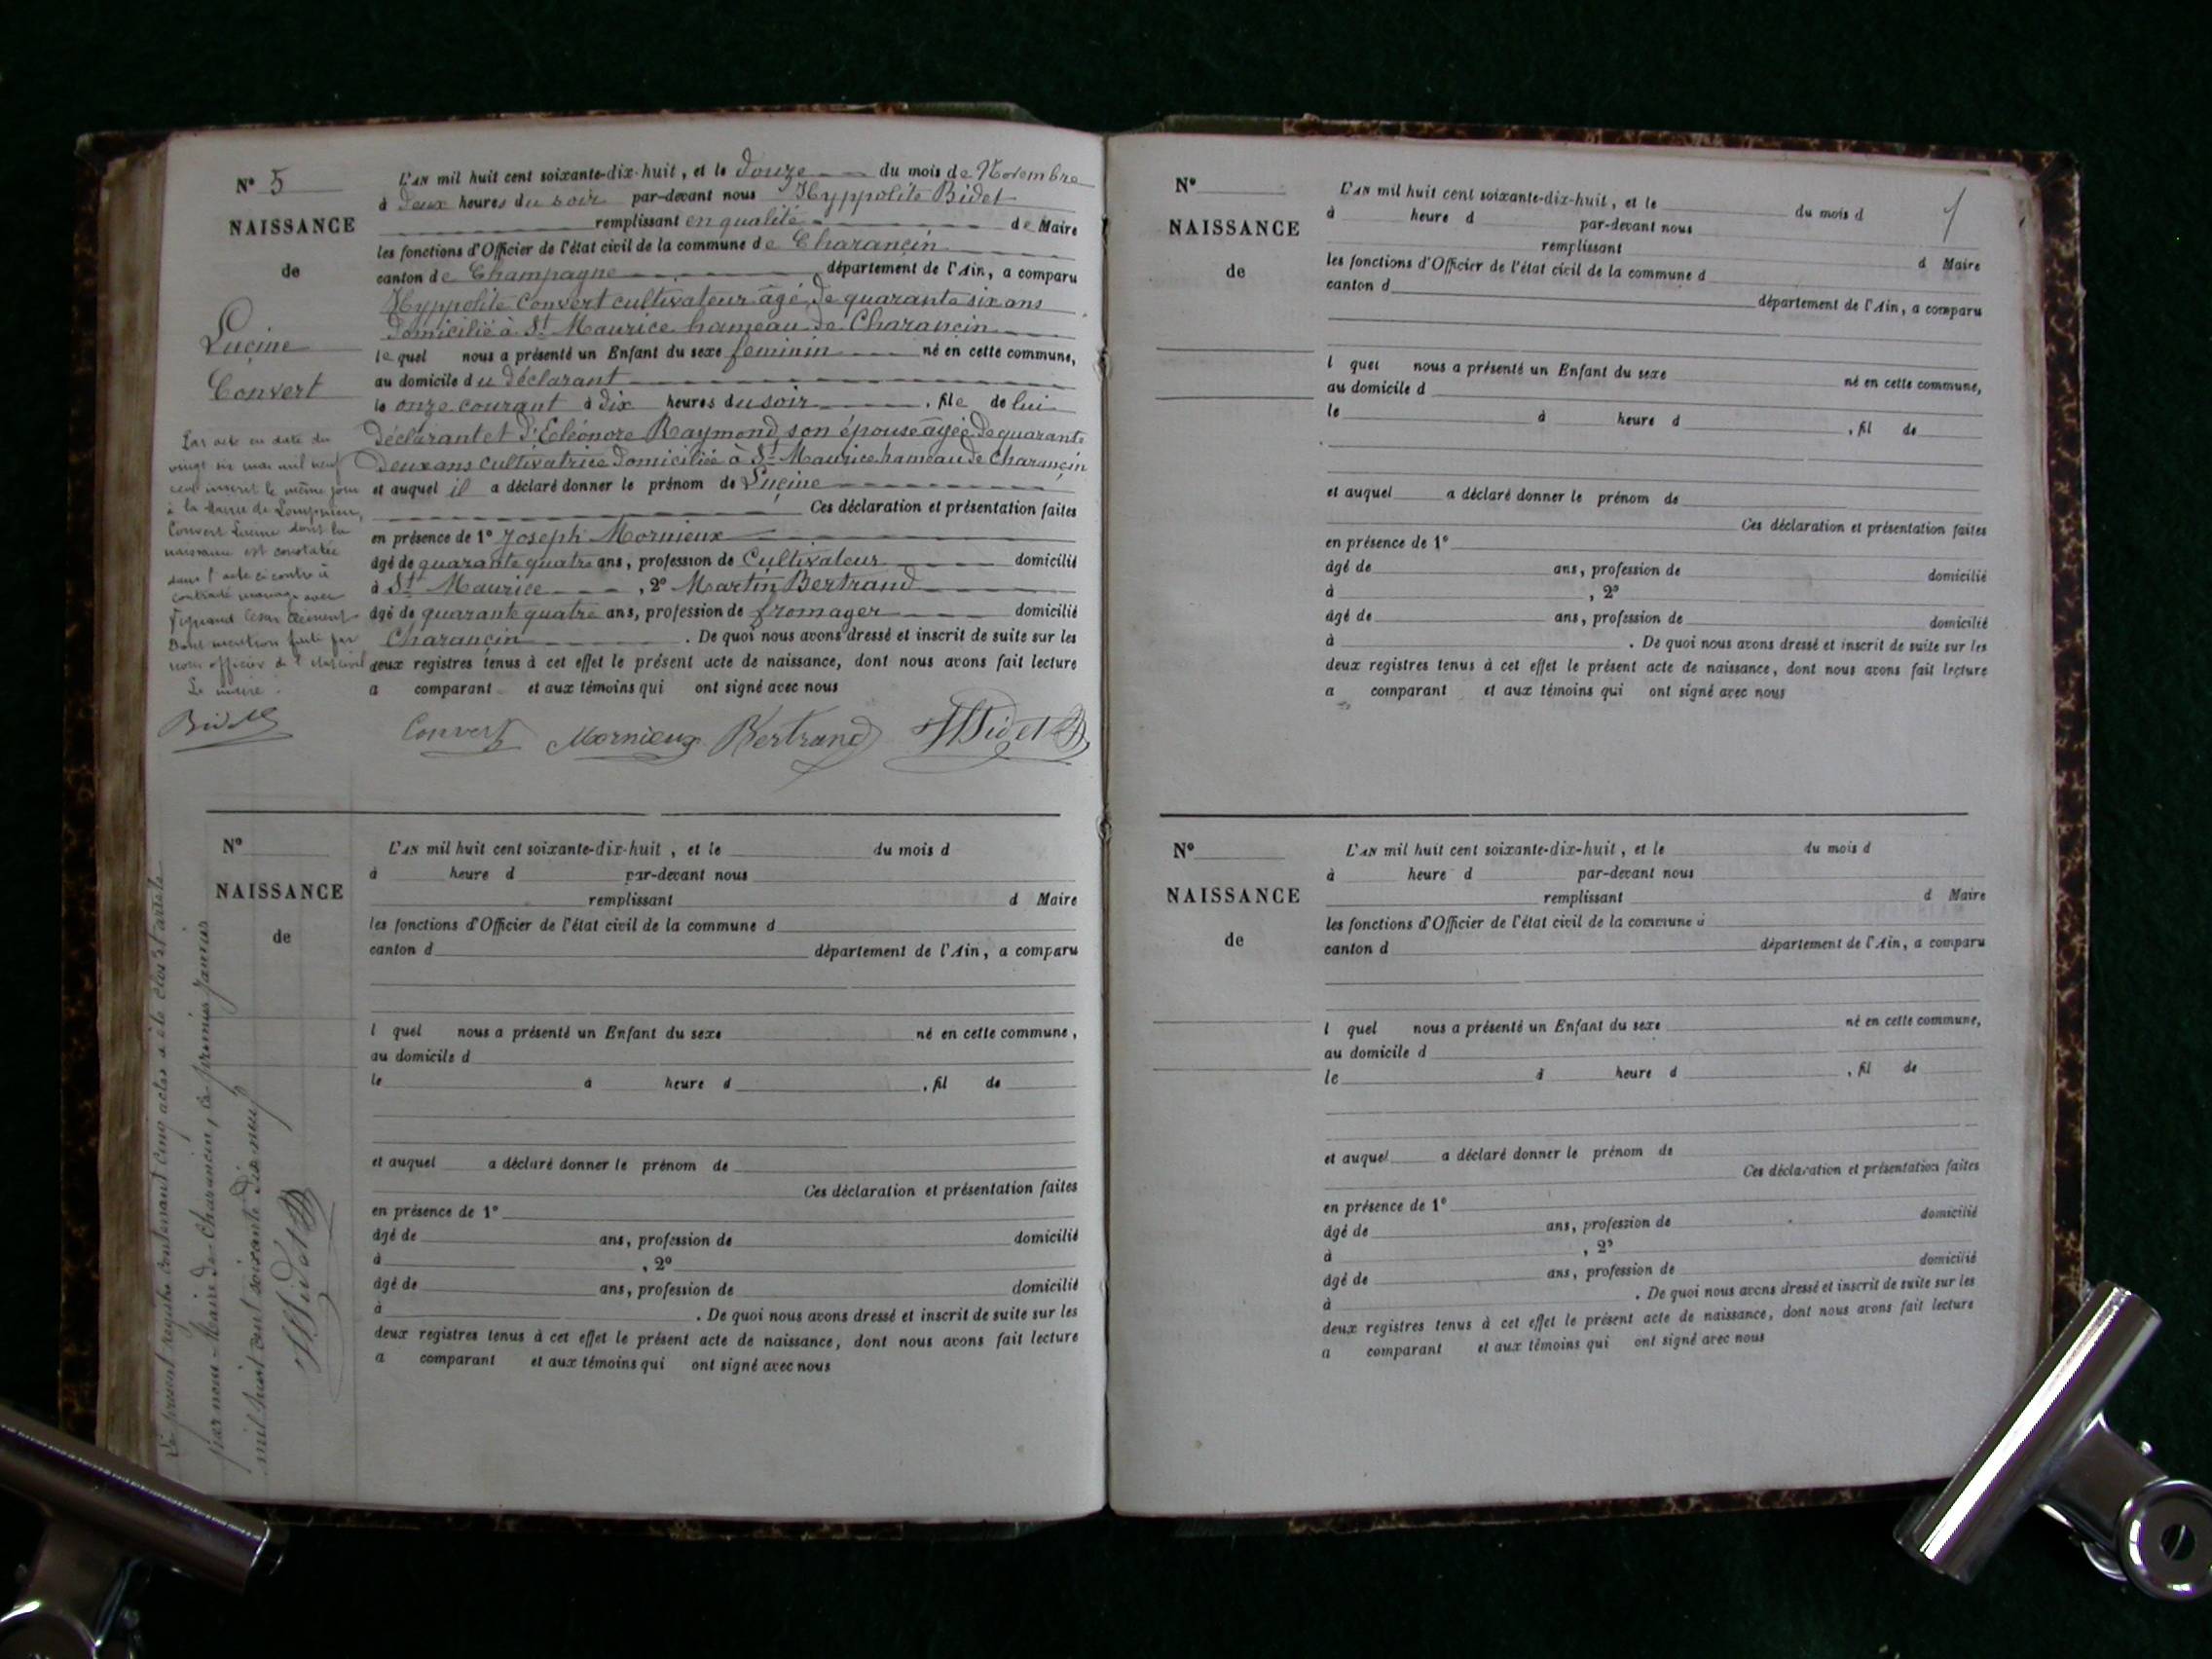 N° 5
NAISSANCE
de
Lucine
Convert
Par acte en date du
vingt six mai mil neuf
cent inscrit le même jour
à la Mairie de
Convert Lucine dont la
naissance est constatée
dans l'acte ci contre à
contracté mariage avec
César Clément
Dont mention faite par
nous officier de l'état civil
Le maire
Bidet
L'AN mil huit cent soixante-dix-huit, et le douze du mois de Novembre
à deux heures du soir par-devant nous Hyppolite Bidet
remplissant en qualité de Maire
les fonctions d'Officier de l'état civil de la commune de Charancin
canton de Champagne département de l'Ain, a comparu
Hyppolite Convert cultivateur âgé de quarante six ans
domicilié à St Maurice hameau de Charancin
lequel nous a présenté un Enfant du sexe feminin né en cette commune,
au domicile du déclarant
le onze courant à dix heures du soir, file de lui
déclarant et d'Eléonore Raymond son épouse agée de quarante
deux ans cultivatrice domiciliée à St Maurice hameau de Charancin
et auquel il a déclaré donner le prénom de Lucine
Ces déclaration et présentation faites
en présence de 1° Joseph Mornieux
âgé de quarante quatre ans, profession de Cultivateur domicilié
à St Maurice, 2° Martin Bertrand
âgé de quarante quatre ans, profession de fromager domicilié
Charancin. De quoi nous avons dressé et inscrit de suite sur les
deux registres tenus à cet effet le présent acte de naissance, dont nous avons fait lecture
a comparant et aux témoins qui ont signé avec nous
Convert Mornieux Bertrand HBidet
N°
NAISSANCE
de
L'AN mil huit cent soixante-dix-huit, et le du mois d
à heure d par-devant nous
remplissant d Maire
les fonctions d'Officier de l'état civil de la commune d
canton d département de l'Ain, a comparu
l quel nous a présenté un Enfant du sexe né en cette commune,
au domicile d
le à heure d , fil de
et auquel a déclaré donner le prénom de
Ces déclaration et présentation faites
en présence de 1°
âgé de ans, profession de domicilié
à , 2°
âgé de ans, profession de domicilié
à . De quoi nous avons dressé et inscrit de suite sur les
deux registres tenus à cet effet le présent acte de naissance, dont nous avons fait lecture
a comparant et aux témoins qui ont signé avec nous
Le présent registre contenant cinq actes a été clos et arrêté
par nous Maire de Charancin, le premier Janvier
mil huit cent soixante dix neuf
HBidet
N°
NAISSANCE
de
L'AN mil huit cent soixante-dix-huit, et le du mois d
à heure d par-devant nous
remplissant d Maire
les fonctions d'Officier de l'état civil de la commune d
canton d département de l'Ain, a comparu
l quel nous a présenté un Enfant du sexe né en cette commune,
au domicile d
le à heure d , fil de
et auquel a déclaré donner le prénom de
Ces déclaration et présentation faites
en présence de 1°
âgé de ans, profession de domicilié
à , 2°
âgé de ans, profession de domicilié
à . De quoi nous avons dressé et inscrit de suite sur les
deux registres tenus à cet effet le présent acte de naissance, dont nous avons fait lecture
a comparant et aux témoins qui ont signé avec nous
N°
NAISSANCE
de
L'AN mil huit cent soixante-dix-huit, et le du mois d
à heure d par-devant nous
remplissant d Maire
les fonctions d'Officier de l'état civil de la commune d
canton d département de l'Ain, a comparu
l quel nous a présenté un Enfant du sexe né en cette commune,
au domicile d
le à heure d , fil de
et auquel a déclaré donner le prénom de
Ces déclaration et présentation faites
en présence de 1°
âgé de ans, profession de domicilié
à , 2°
âgé de ans, profession de domicilié
à . De quoi nous avons dressé et inscrit de suite sur les
deux registres tenus à cet effet le présent acte de naissance, dont nous avons fait lecture
a comparant et aux témoins qui ont signé avec nous